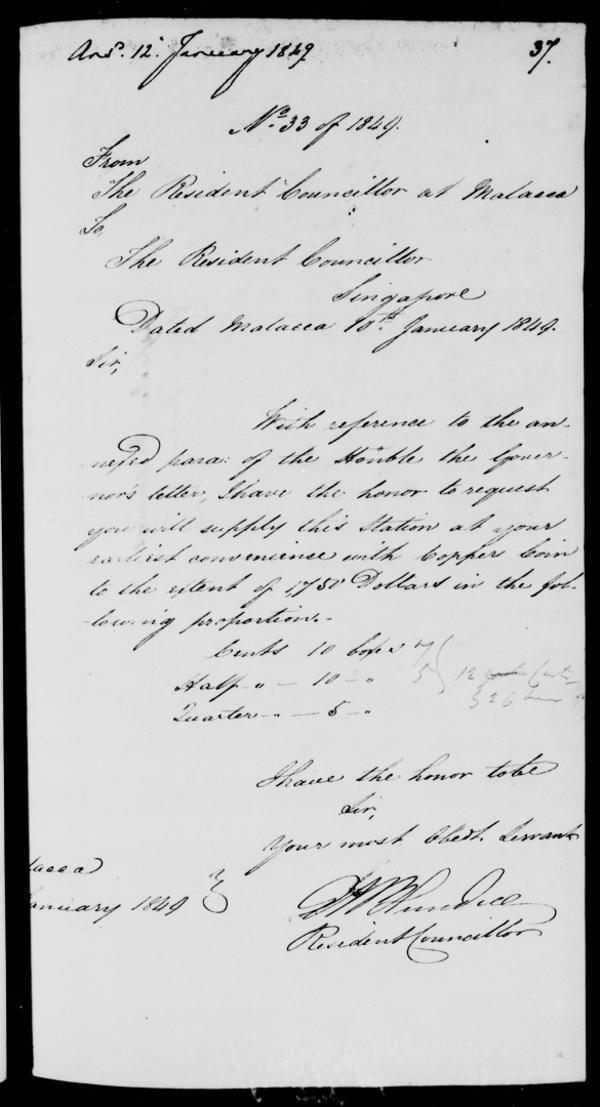 Ansd. 12th January 1849
37.
No. 33 of 1849.
From
The Resident Councillor at Malacca
To,
The Resident Councillor
Singapore
Dated Malacca 10th January 1849.
Sir,
With reference to the an-
nexed para: of the Honble the Gover-
nor's letter, I have the honor to request
you will supply this Station at your
earliest convenience with Copper Coin
to the extent of 1,750 Dollars in the fol-
lowing proportion.-
Cents 10 boxes 7
Half " — 10 — " 5 12
Quarter — " — 5 — "
I have the honor to be
Sir,
Your most Obedt. Servant
Resident Councillor
lacca
anuary 1849